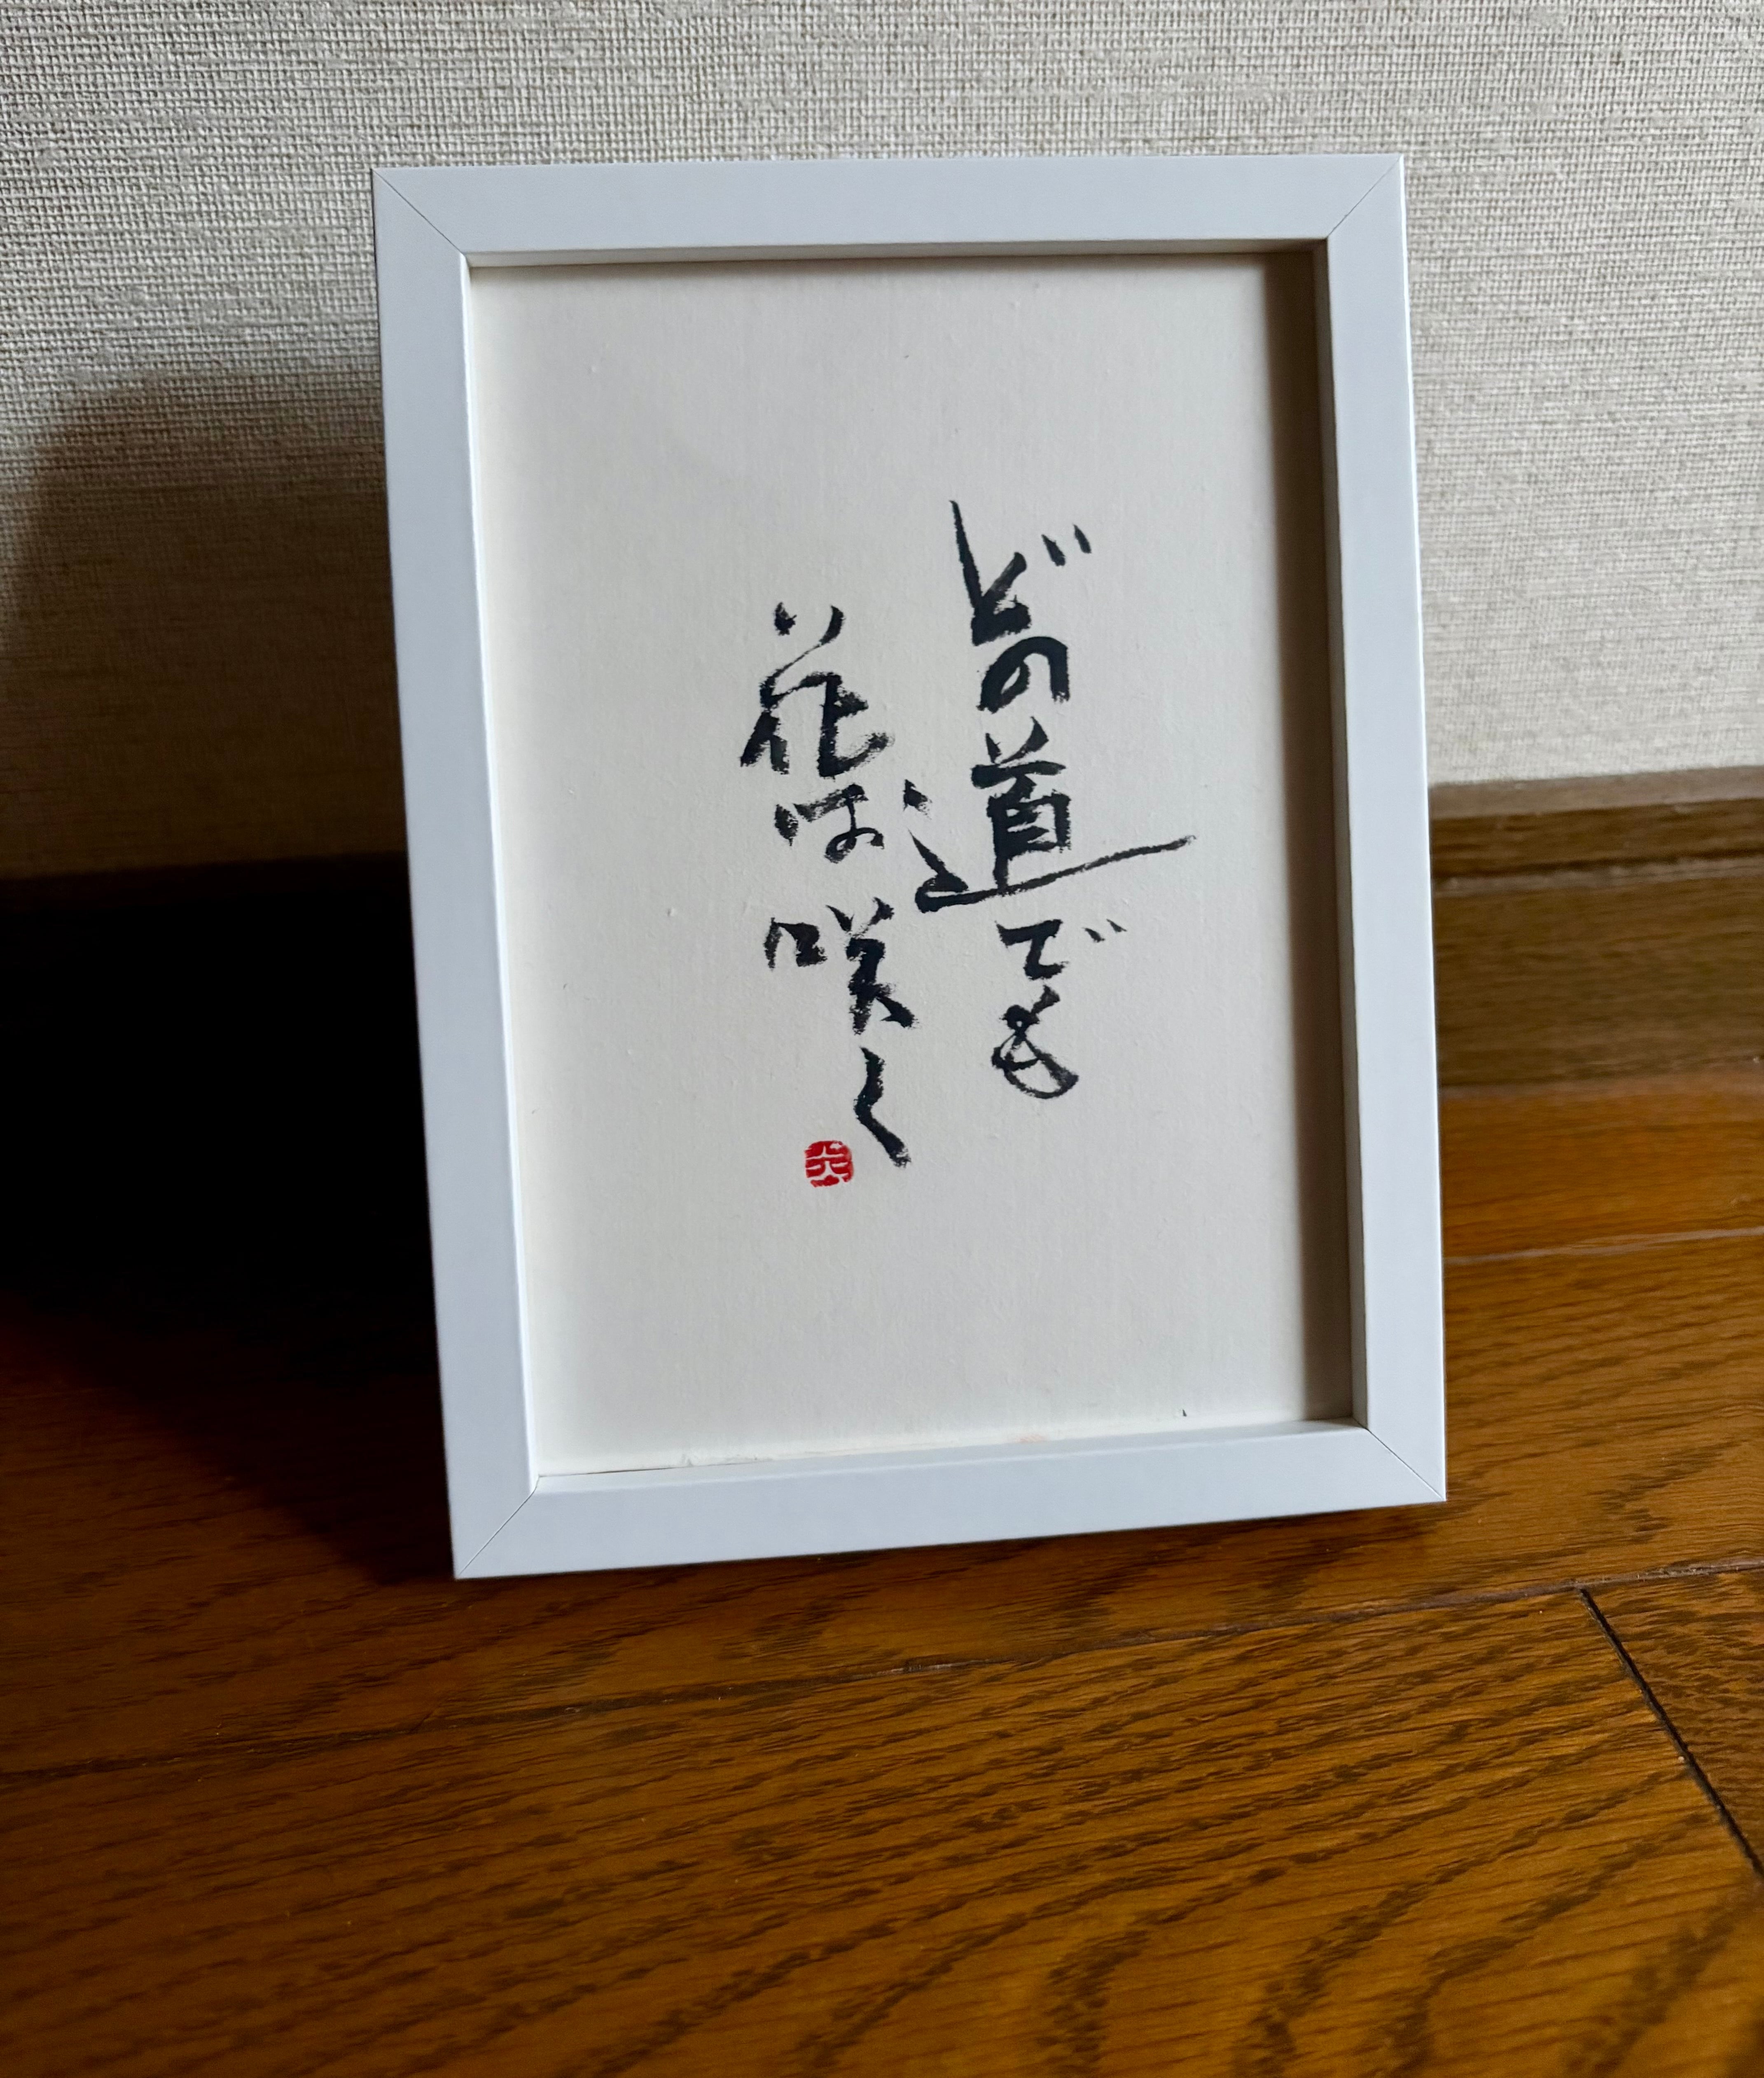 どの道でも
花は咲く